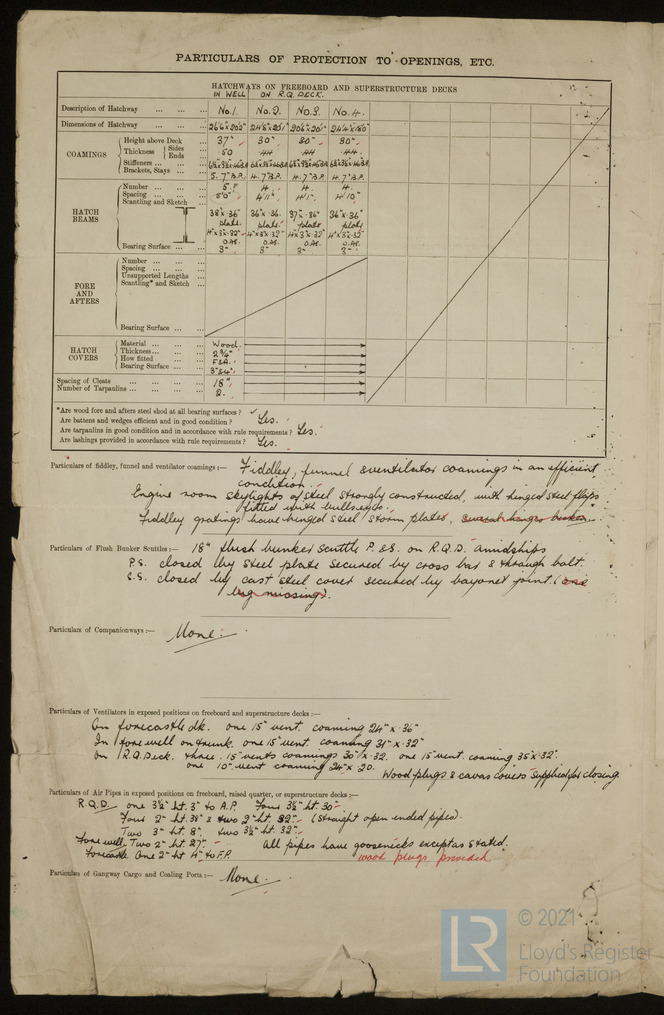 PARTICULARS OF PROTECTION TO OPENINGS, ETC.
HATCHWAYS ON FREEBOARD AND SUPERSTRUCTURE DECKS
IN WELL ON R.Q. DECK.
Description of Hatchway No.1. No.2. No.3. No.4.
Dimensions of Hatchway
COAMINGS
Height above Deck 37" 30" 30" 30"
Thickness Sides Ends .50 .44 .44 .44
Stiffeners
Brackets, Stays 5. 7"B.P. 4. 7"B.P. 4. 7"B.P. 4. 7"B.P.
HATCH BEAMS
Number 5. 4. 4. 4.
Spacing 5'0" 4'11" 4'1" 4'10"
Scantling and Sketch
38"x.36" 36"x.36. 37"x.36" 36"x.36"
plate. plate. plate plate
4"x3"x.32" 4"x3"x.32" 4"x3"x.32" 4"x3"x.32"
O.As. O.As. O.As. O.As.
Bearing Surface 3" 3" 3" 3"
FORE AND AFTERS
Number
Spacing
Unsupported Lengths
Scantling* and Sketch
Bearing Surface
HATCH COVERS
Material Wood.
Thickness 2¾"
How fitted F&A.
Bearing Surface 3"&4"
Spacing of Cleats 18"
Number of Tarpaulins 2.
*Are wood fore and afters steel shod at all bearing surfaces?
Are battens and wedges efficient and in good condition? Yes.
Are tarpaulins in good condition and in accordance with rule requirements? Yes.
Are lashings provided in accordance with rule requirements? Yes.
Particulars of fiddley, funnel and ventilator coamings:— Fiddley, funnel & ventilator coamings in an efficient
condition.
Engine room skylights of steel strongly constructed, with hinged steel flaps
fitted with bullseyes.
Fiddley gratings have hinged steel storm plates, several hinges broken.
Particulars of Flush Bunker Scuttles:— 18" flush bunker scuttle P. & S. on R.Q.D. amidships
P.S. closed by steel plate secured by cross bar & through bolt.
S.S. closed by cast steel cover secured by bayonet joint. (one
lug missing).
Particulars of Companionways:— None.
Particulars of Ventilators in exposed positions on freeboard and superstructure decks:—
On forecastle dk. one 15" vent. coaming 24" x .36"
In fore well on trunk. one 15" vent. coaming 31" x .32"
On R.Q. Deck. three. 15" vents coamings 30" x .32. one 15" vent. coaming 35" x .32"
one 10" vent coaming 24" x .20.
Wood plugs & canvas covers supplied for closing.
Particulars of Air Pipes in exposed positions on freeboard, raised quarter, or superstructure decks:—
R.Q.D. one 3½" ht. 3" to A.P. Four 3½" ht. 30"
Four 2" ht. 38" & two 2" ht. 32". (straight open ended pipes).
Two 3" ht. 8". two 3½" ht. 32".
Fore well. Two 2" ht. 27". All pipes have goosenecks except as stated.
Forecastle One 2" ht 4" to F.P. wood plugs provided
Particulars of Gangway Cargo and Coaling Ports:— None.
LR
© 2021
Lloyd's Register
Foundation